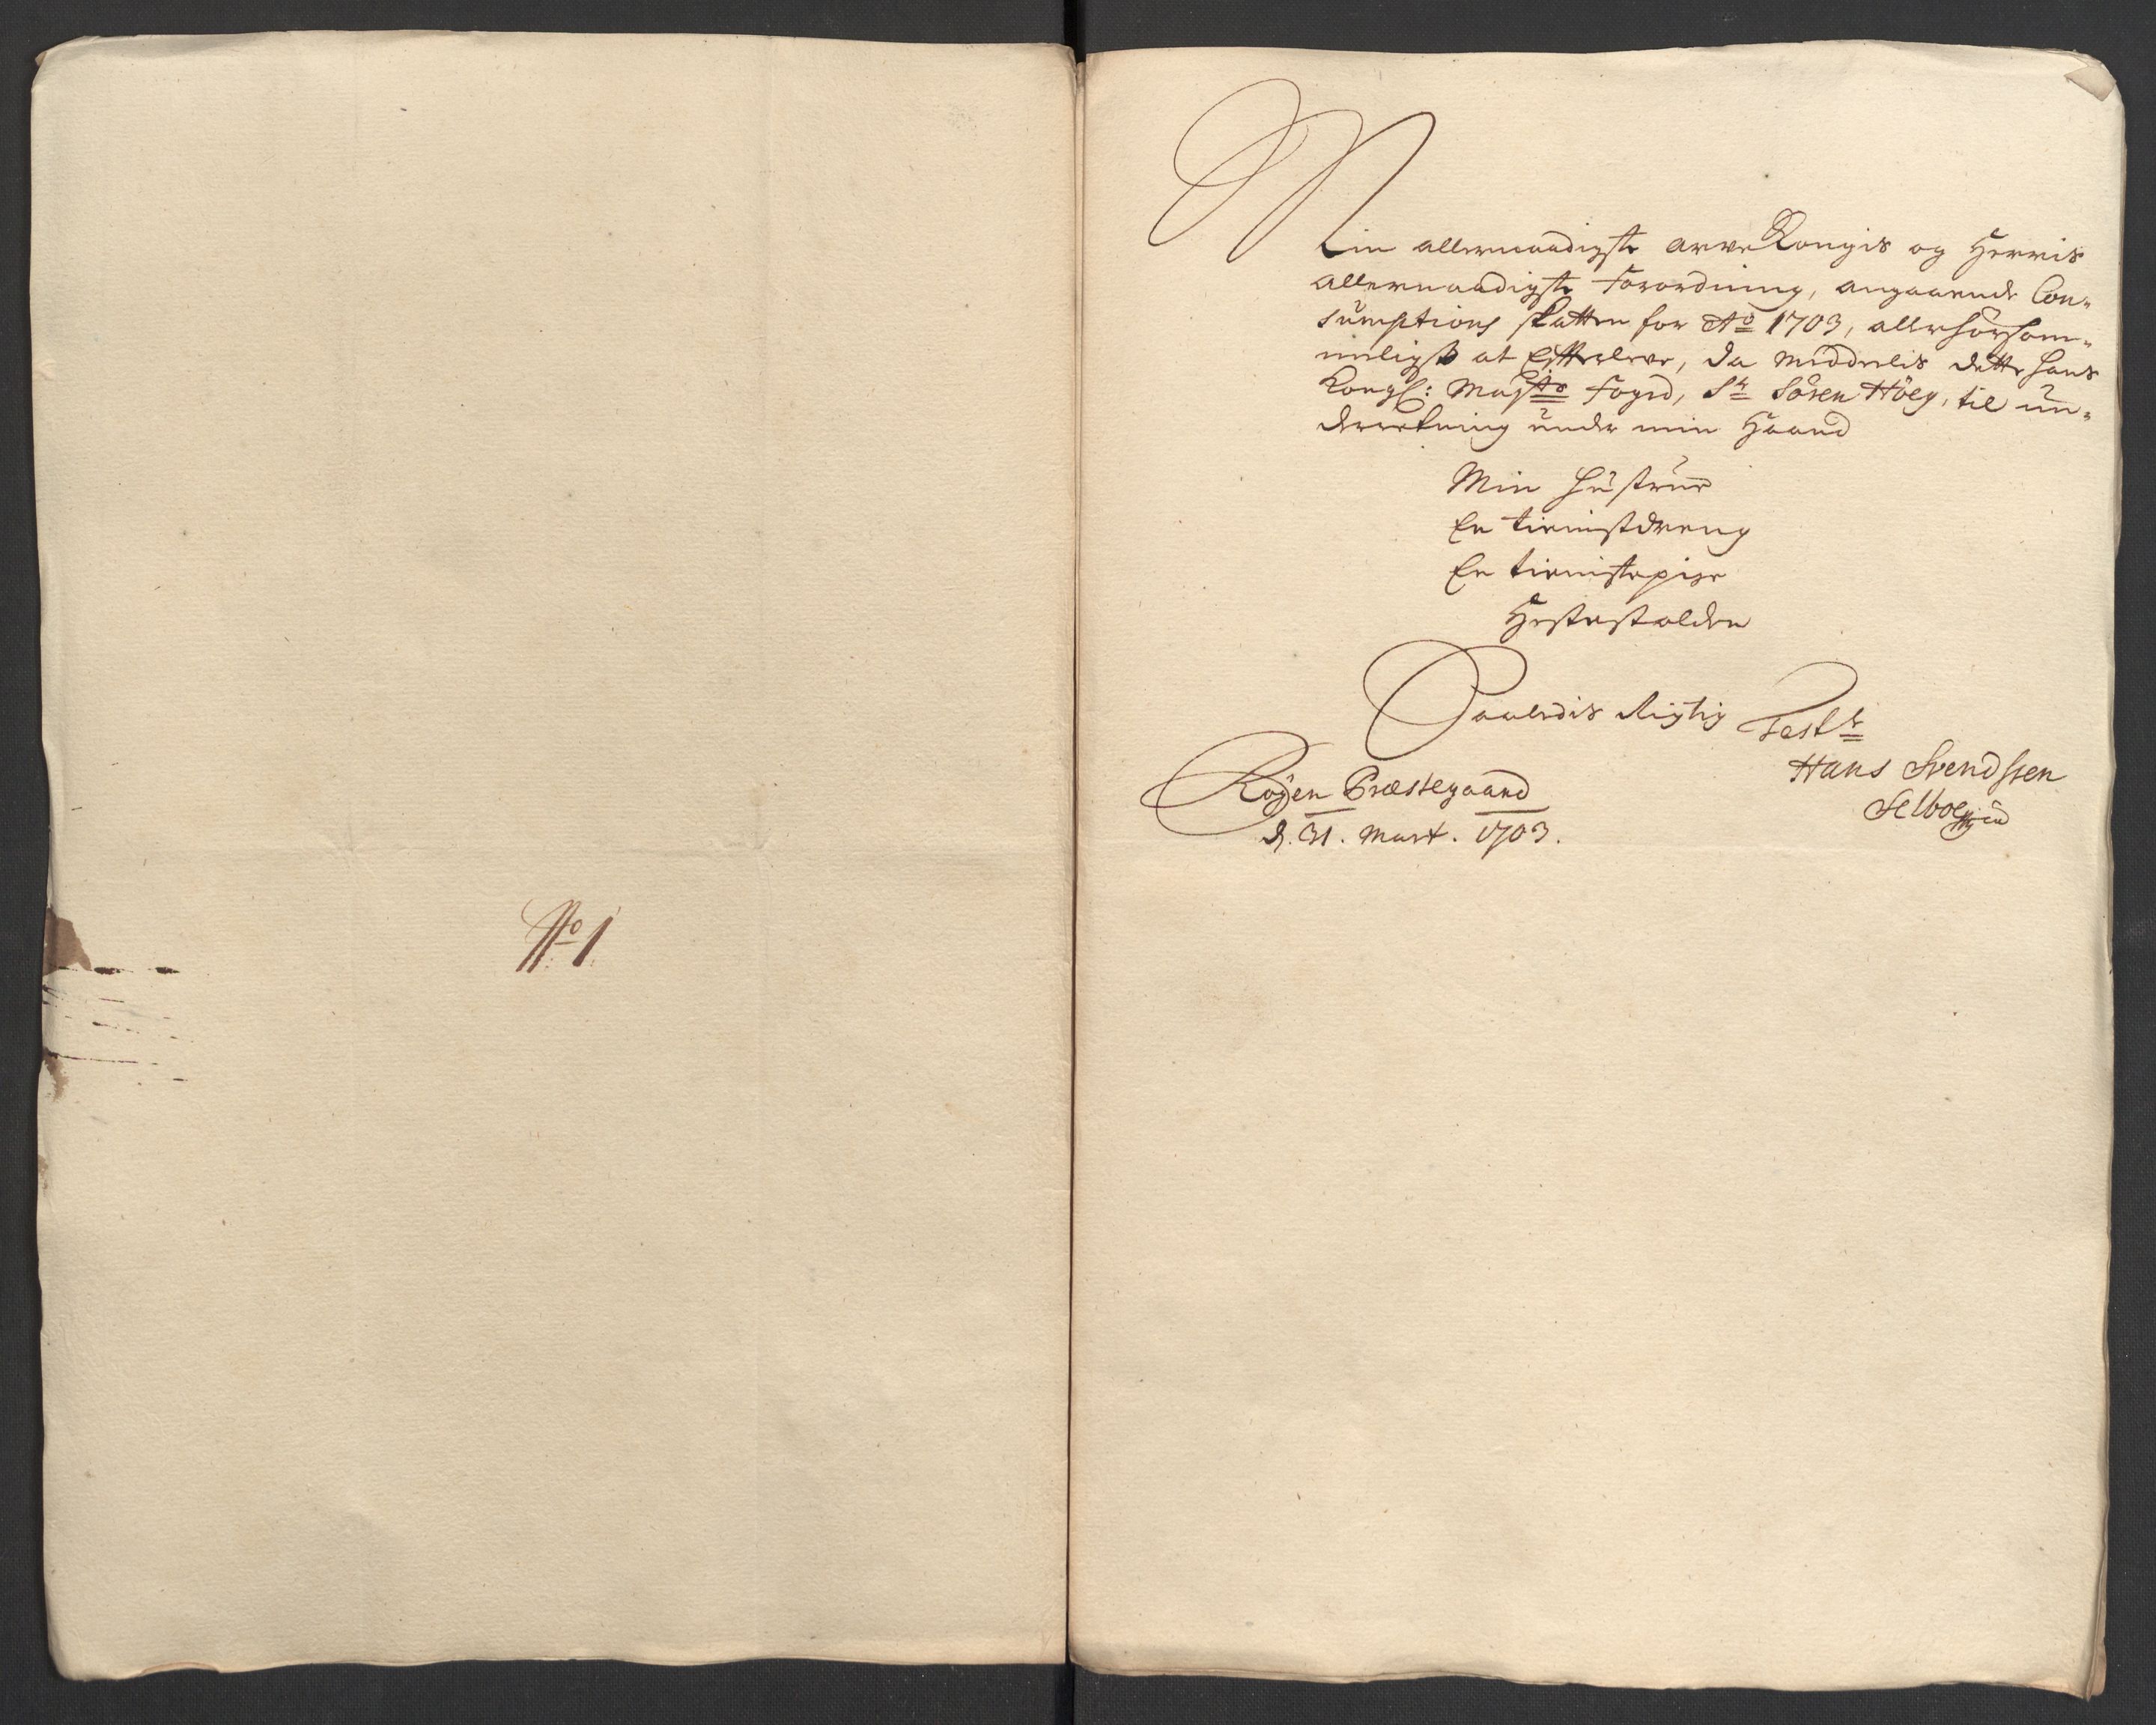 No 1
Min allernaadigste arve Kongis og Herris
allernaadigste Forordning, angaaende Con-
sumptions skatten for Ao 1703, allerhörsom-
meligst at Efterleve, da meddelis dette hans
Kongl: Mayts Foged, Sr Sören Höeg, til un-
derretning under min Haand
Min hustrue
En tienistdreng
En tienistepige
Hestestalden
Saaledis Rigtig Testr
Hans Svendssen
Selboe
Röyen Præstegaard
d. 31. Mart. 1703.